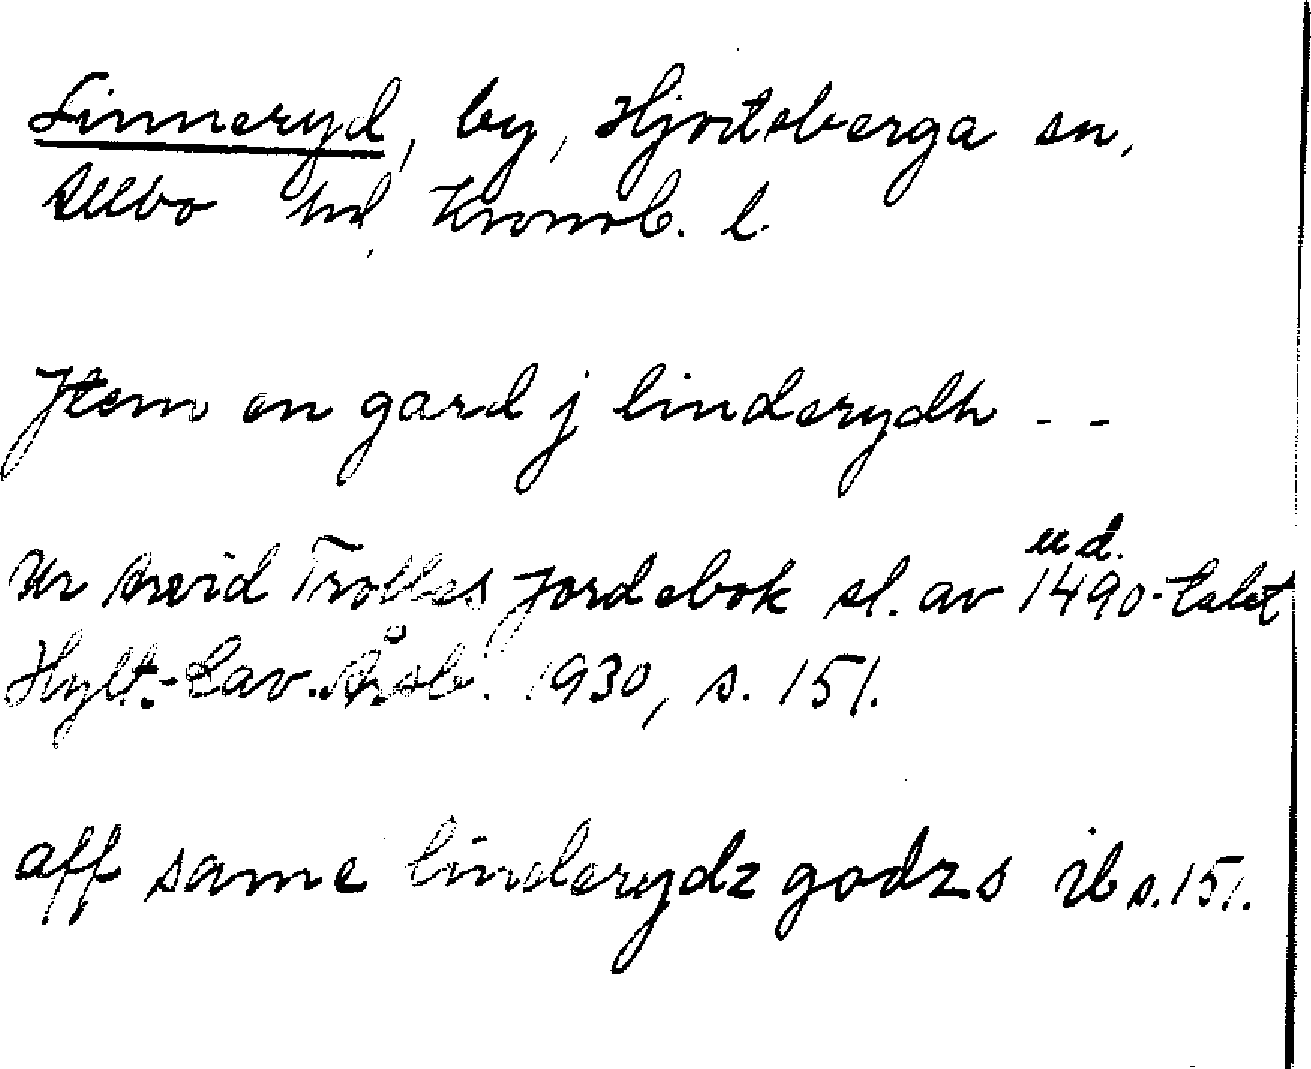 Linneryd, by, Hjortsberga sn,
Allbo hd, Kronob. l.
Jtem en gard j linderydh - -
ud.
Ur Arvid Trolles Jordebok sl. av 1490-talet
Hylt.-Cav. Årsb. 1930, s. 151.
aff same linderydz godzs ib s. 151.